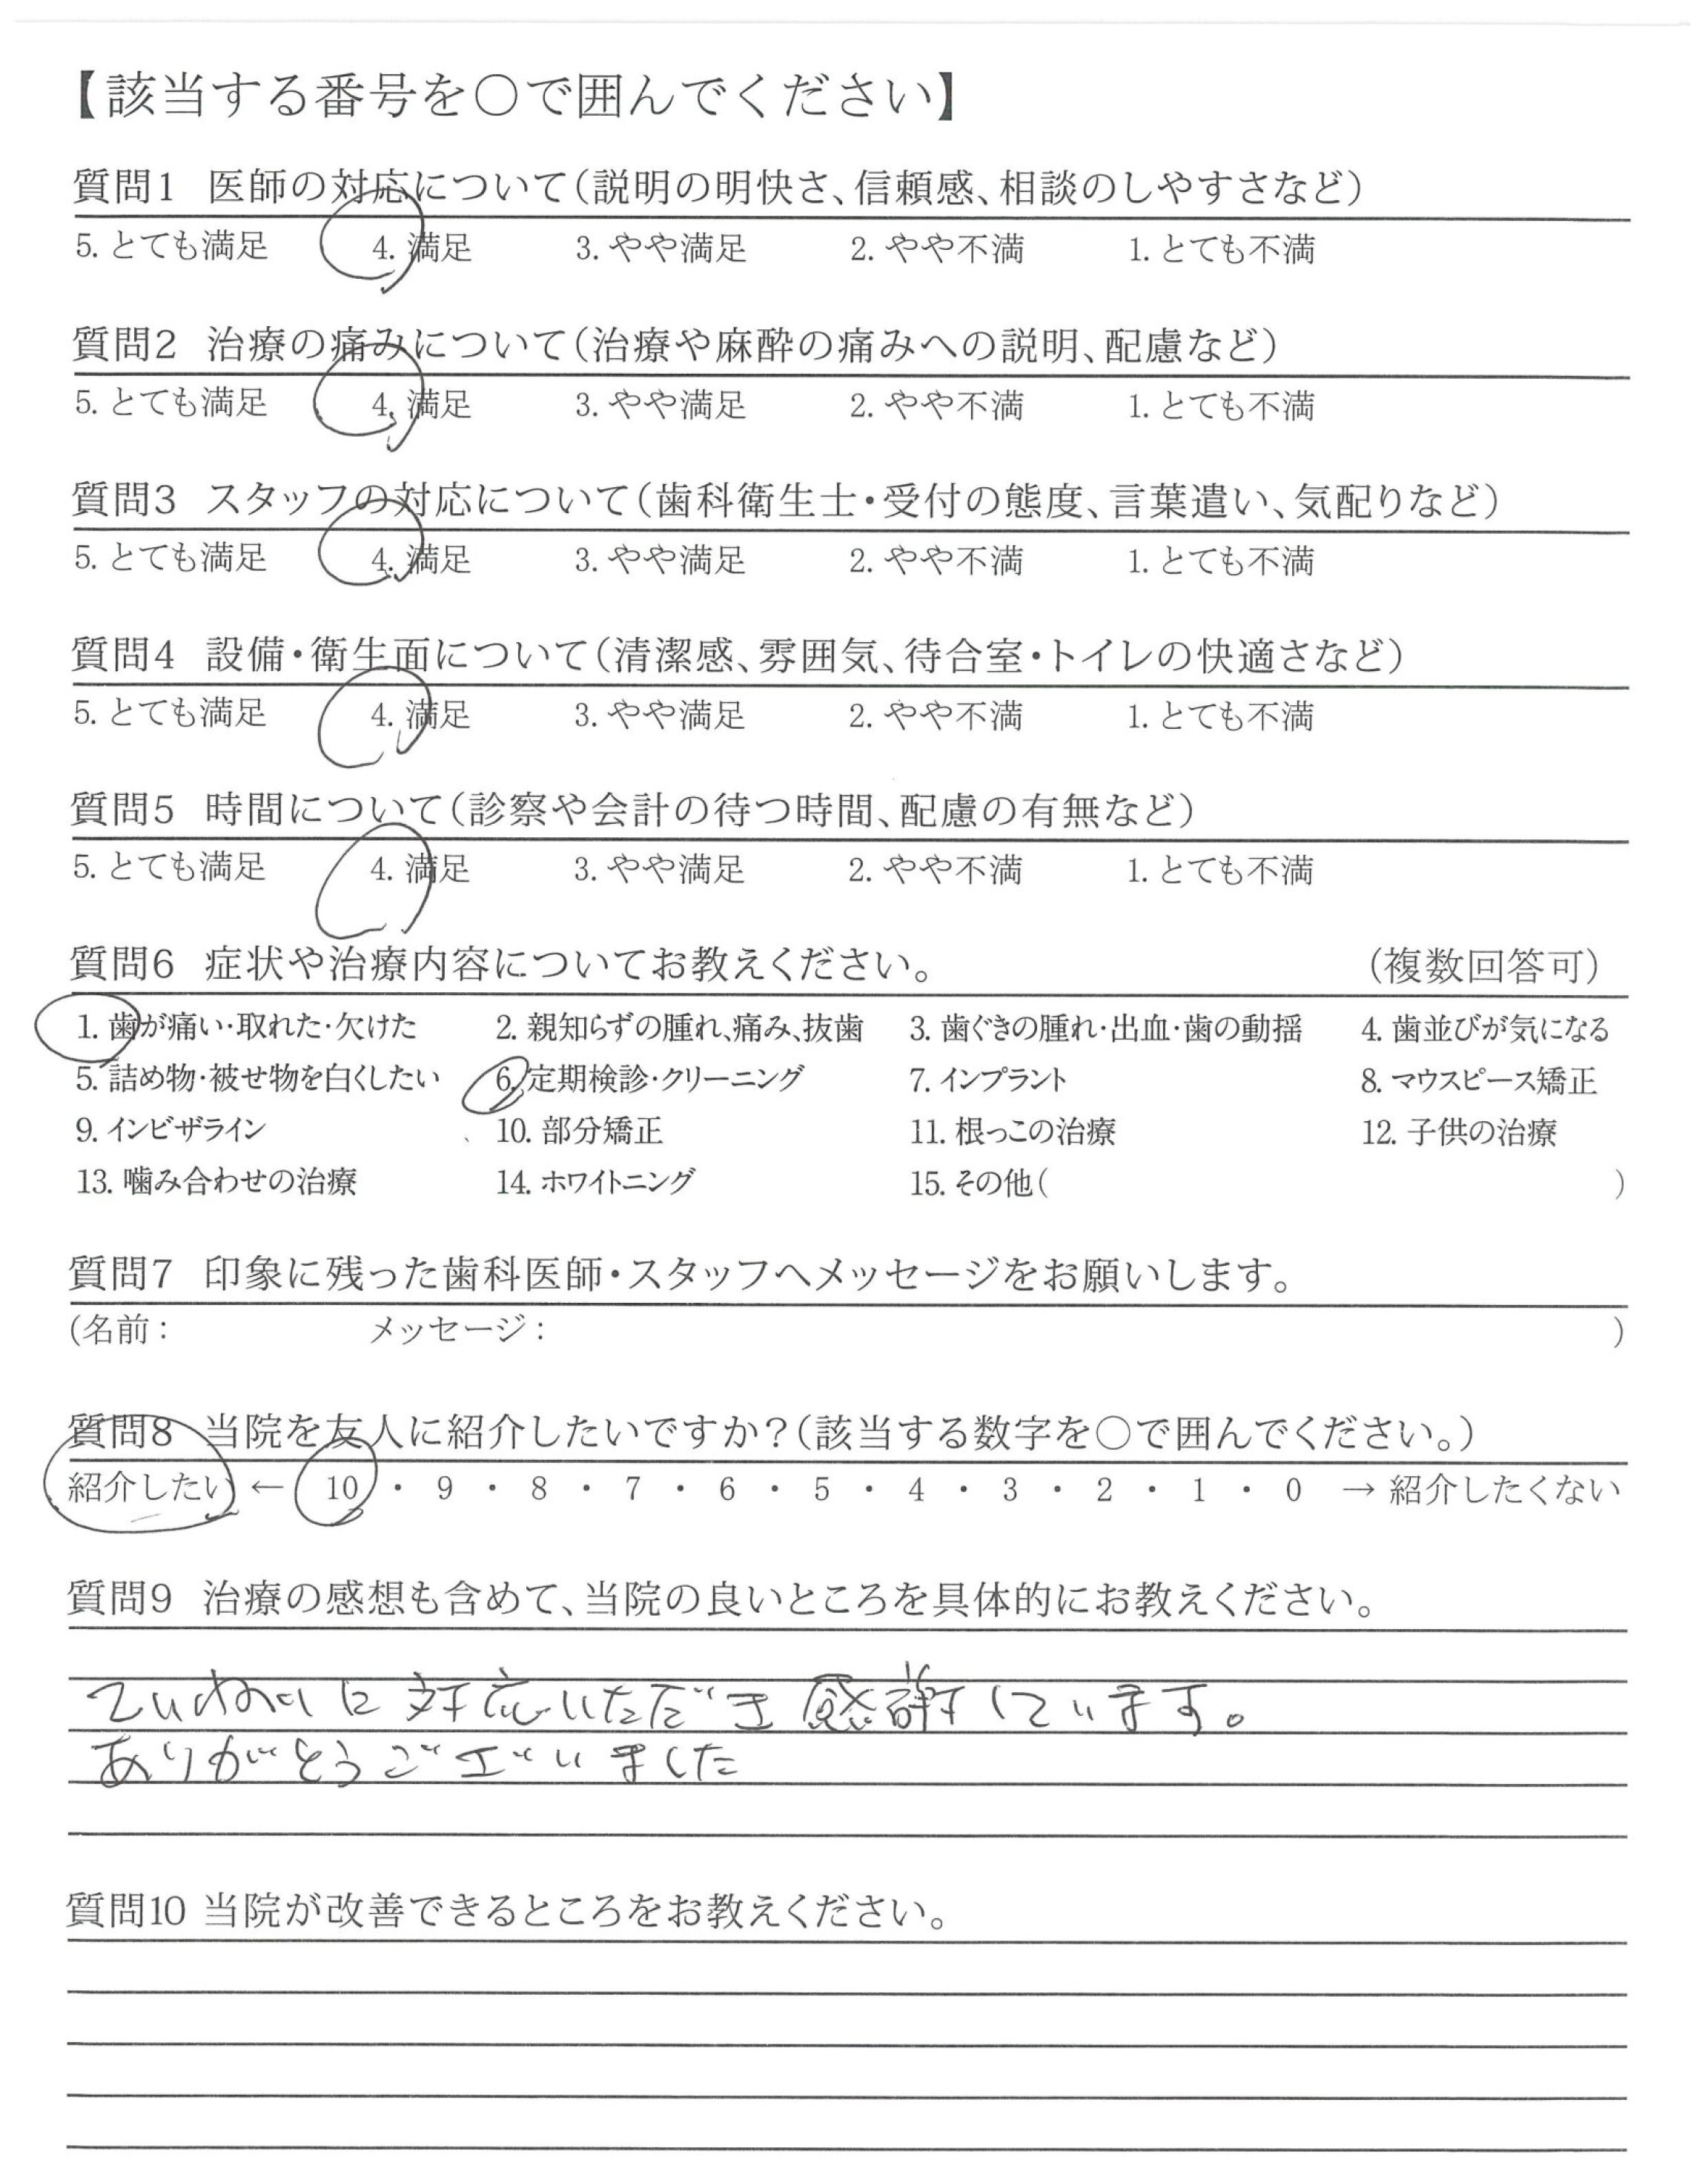 【該当する番号を○で囲んでください】
質問1 医師の対応について(説明の明快さ、信頼感、相談のしやすさなど)
5. とても満足 4. 満足 3. やや満足 2. やや不満 1. とても不満
質問2 治療の痛みについて(治療や麻酔の痛みへの説明、配慮など)
5. とても満足 4. 満足 3. やや満足 2. やや不満 1. とても不満
質問3 スタッフの対応について(歯科衛生士・受付の態度、言葉遣い、気配りなど)
5. とても満足 4. 満足 3. やや満足 2. やや不満 1. とても不満
質問4 設備・衛生面について(清潔感、雰囲気、待合室・トイレの快適さなど)
5. とても満足 4. 満足 3. やや満足 2. やや不満 1. とても不満
質問5 時間について(診察や会計の待つ時間、配慮の有無など)
5. とても満足 4. 満足 3. やや満足 2. やや不満 1. とても不満
質問6 症状や治療内容についてお教えください。 (複数回答可)
1. 歯が痛い・取れた・欠けた 2. 親知らずの腫れ、痛み、抜歯 3. 歯ぐきの腫れ・出血・歯の動揺 4. 歯並びが気になる
5. 詰め物・被せ物を白くしたい 6. 定期検診・クリーニング 7. インプラント 8. マウスピース矯正
9. インビザライン 10. 部分矯正 11. 根っこの治療 12. 子供の治療
13. 噛み合わせの治療 14. ホワイトニング 15. その他( )
質問7 印象に残った歯科医師・スタッフへメッセージをお願いします。
(名前: メッセージ: )
質問8 当院を友人に紹介したいですか?(該当する数字を○で囲んでください。)
紹介したい ← 10 ・ 9 ・ 8 ・ 7 ・ 6 ・ 5 ・ 4 ・ 3 ・ 2 ・ 1 ・ 0 → 紹介したくない
質問9 治療の感想も含めて、当院の良いところを具体的にお教えください。
ていねいに対応いただき感謝しています。
ありがとうございました
質問10 当院が改善できるところをお教えください。